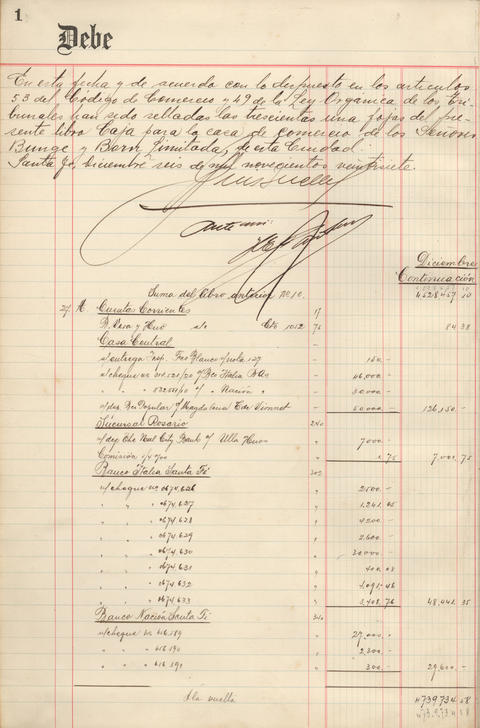 1
Debe
En esta fecha y de acuerdo con lo dispuesto en los artículos
53 del Código de Comercio y 49 de la Ley Orgánica de los Tri-
bunales han sido selladas las trescientas una fojas del pre-
sente libro Caja para la casa de comercio de los Señores
Bunge y Born Limitada, de esta Ciudad.
Santa Fe, Diciembre seis de mil novecientos veintisiete.
Ante mi:
Diciembre
Continuación
Suma del libro anterior No 10. 4528457 10
27 A Cuentas Corrientes 17
Casa y Hno s/c 1012 " 84 38
Casa Central
s/entrega Insp. Fco Blanco s/nota 127 150.-
s/cheque Bco Italia BAs 46,000.-
" " " Nación " 30000.-
Bco Popular Magdalena 50000.- 126,150.-
Sucursal Rosario 240
City Bank Ulla Hnos " 7000.-
Comisión " .75 7,000.75
Banco Italia Santa Fé 302
n/cheque No 0674.626 " 2500.-
" " " 0674.627 " 1,241.05
" " " 0674.628 " 4200.-
" " " 0674.629 " 2,600.-
" " " 0674.630 "
" " " 0674.631 "
" " " 0674.632 "
" " " 0674.633 " 3,408.76
Banco Nación Santa Fé
n/cheque No 616.189 " 27,000.-
" " " 616.190 " 2,300.-
" " " 616.191 " 300.- 29,600.-
A la vuelta